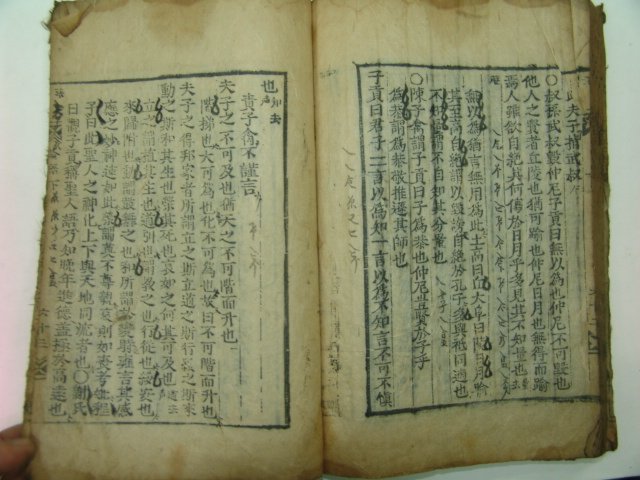 此夫子指武叔
○叔孫武叔毀仲尼子貢曰無以為也仲尼不可毀也
他人之賢者丘陵也猶可踰也仲尼日月也無得而踰
焉人雖欲自絶其何傷於日月乎多見其不知量也
無以為猶言無用為此土高曰丘大阜曰陵日月踰
其至高自絶謂以謗毀自絶於孔子多與祗同適也
不知量謂不自知其分量也
○陳子禽謂子貢曰子為恭也仲尼豈賢於子乎
為恭謂為恭敬推遜其師也
子貢曰君子一言以為知一言以為不知言不可不慎
也
責子禽不謹言
夫子之不可及也猶天之不可階而升也
階梯也大可為也化不可為也故曰不可階而升也
夫子之得邦家者所謂立之斯立道之斯行綏之斯來
動之斯和其生也榮其死也哀如之何其可及也
立之謂植其生也道引也謂教之也行從也綏安也
來歸附也動謂鼓舞之也和所謂於變時雍言其感
應之妙神速如此榮謂莫不尊親哀則如喪考妣程
子曰此聖人之神化上下與天地同流者也○謝氏
曰觀子貢稱聖人語乃知晚年進德蓋極於高遠也